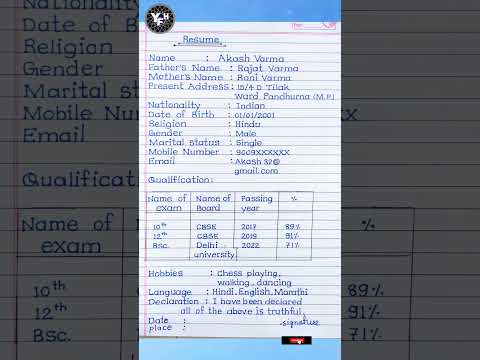 YFH
Resume
Name : Akash Varma
Father's Name : Rajat Varma
Mother's Name : Rani Varma
Present Address : 15/4 D Tilak
Ward Pandhurna (M.P.)
Nationality : Indian
Date of Birth : 01/01/2001
Religion : Hindu
Gender : Male
Marital Status : Single
Mobile Number : 9009XXXXXX
Email : Akash 37@
gmail.com
Qualification :
Name of exam | Name of Board | Passing year | %
10th | CBSE | 2017 | 89%
12th | CBSE | 2019 | 91%
BSC. | Delhi university | 2022 | 71%
Hobbies : Chess playing,
walking, dancing
Language : Hindi, English, Marathi
Declaration : I have been declared
all of the above is truthful
Date :
place :
signature